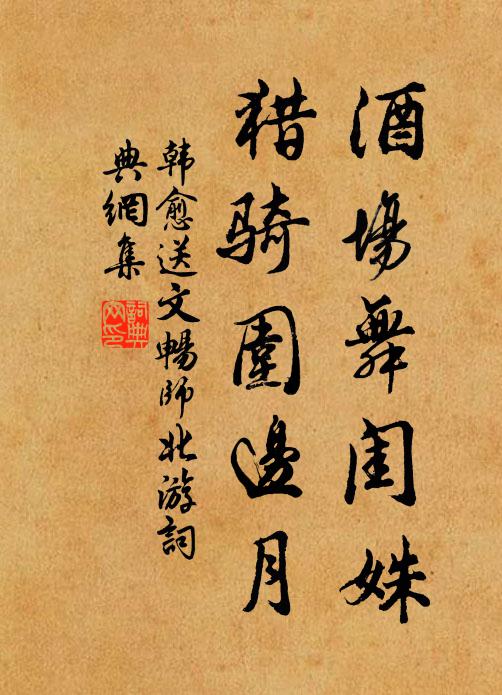 酒場舞閨姝
猎騎圍邊月
韓愈送文暢師北游詞
典網集
詞典網印